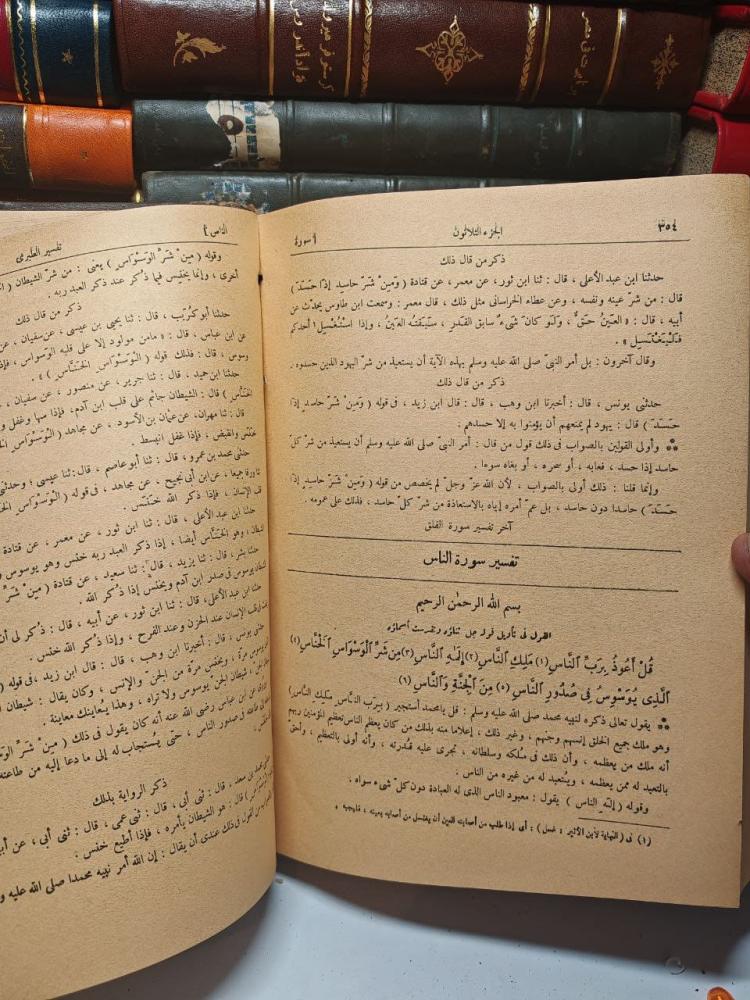 ٣٥٤ الجزء الثلاثون [سورة
ذكر من قال ذلك
حدثنا ابن عبد الأعلى ، قال : ثنا ابن ثور، عن معمر، عن قتادة ( وَمِنْ شَرّ حاسِدٍ إذَا حَسَدَ )
قال : من شرّ عينه ونفسه ، وعن عطاء الخراسانى مثل ذلك ، قال معمر : وسمعت ابن طاوس يحدّث عن
أبيه ، قال : « العَينُ حَقٌّ ، وَلَو كانَ شَىءٌ سابق القَدَرِ ، سَبَقَتْهُ العَيْنُ ، وإذا اسْتُغْسِلَ ١ أحدكم
فَلْيَغْتَسِل » .
وقال آخرون : بل أمر النبىّ صلى الله عليه وسلم بهذه الآية أن يستعيذ من شرّ اليهود الذين حسدوه .
ذكر من قال ذلك
حدثنى يونس ، قال : أخبرنا ابن وهب ، قال : قال ابن زيد ، فى قوله ( وَمِنْ شَرّ حاسِدٍ إذَا
حَسَدَ ) قال : يهود لم يمنعهم أن يؤمنوا به إلا حسدهم .
وأولى القولين بالصواب فى ذلك قول من قال : أمر النبىّ صلى الله عليه وسلم أن يستعيذ من شرّ كلّ
حاسد إذا حسد ، فعابه ، أو سحره ، أو بغاه سوءا .
وإنما قلنا : ذلك أولى بالصواب ، لأن الله عزّ وجلّ لم يخصص من قوله ( وَمِنْ شَرّ حاسِدٍ إذَا
حَسَدَ ) حاسدا دون حاسد ، بل عمّ أمره إياه بالاستعاذة من شرّ كلّ حاسد ، فذلك على عمومه .
آخر تفسير سورة الفلق
تفسير سورة الناس
بسم الله الرحمن الرحيم
القول فى تأويل قوله جل ثناؤه وتقدست أسماؤه
قُلْ أَعُوذُ بِرَبِّ النَّاسِ (١) مَلِكِ النَّاسِ (٢) إِلَهِ النَّاسِ (٣) مِن شَرِّ الْوَسْوَاسِ الْخَنَّاسِ (٤)
الَّذِى يُوَسْوِسُ فِى صُدُورِ النَّاسِ (٥) مِنَ الْجِنَّةِ وَالنَّاسِ (٦)
يقول تعالى ذكره لنبيه محمد صلى الله عليه وسلم : قل يا محمد أستجير ( بِرَبّ النَّاسِ مَلِكِ النَّاسِ )
وهو ملك جميع الخلق إنسهم وجنهم ، وغير ذلك ، إعلاما منه بذلك من كان يعظم الناس تعظيم المؤمنين ربهم
أنه ملك من يعظمه ، وأن ذلك فى مُلكه وسلطانه ، تجرى عليه قُدرته ، وأنه أولى بالتعظيم ، وأحقّ
بالتعبد له ممن يعظمه ، ويُتعبد له من غيره من الناس .
وقوله ( إلَهِ النَّاسِ ) يقول : معبود الناس الذى له العبادة دون كلّ شىء سواه .
(١) فى ( النهاية لابن الأثير : غسل ) : أى إذا طلب من أصابته العين أن يغتسل من أصابه بعينه ، فليجبه .
الناس] تفسير الطبرى
وقوله ( مِنْ شَرّ الوَسْوَاسِ ) يعنى : من شرّ الشيطان
أخرى ، وإنما يخنِس فيما ذُكر عند ذكر العبد ربه .
ذكر من قال ذلك
حدثنا أبو كُرَيب ، قال : ثنا يحيى بن عيسى ، عن سفيان ، عن
عن ابن عباس ، قال : « مامن مولود إلا على قلبه الوسواس ، فإذا
وسوس ، قال : فذلك قوله ( الوَسْوَاسِ الخَنَّاسِ ) » .
حدثنا ابن حميد ، قال : ثنا جرير ، عن منصور ، عن سفيان ،
الخَنَّاسِ ) قال : الشيطان جاثم على قلب ابن آدم، فإذا سها وغفل
قال : ثنا مهران، عن عثمان بن الأسود ، عن مجاهد ( الوَسْوَاسِ
خنَس وانقبض ، فإذا غفل انبسط .
حدثنى محمد بن عمرو ، قال : ثنا أبو عاصم ، قال : ثنا عيسى ؛ وحدثنى
ثنا ورقاء جميعا ، عن ابن أبى نجيح ، عن مجاهد ، فى قوله ( الوَسْوَاسِ
قلب الإنسان ، فإذا ذكر الله خَنَس .
حدثنا ابن عبد الأعلى ، قال : ثنا ابن ثور ، عن معمر ، عن قتادة
الشيطان ، وهو الخَنَّاس أيضا ، إذا ذكر العبد ربه خنس وهو يوسوس
حدثنا بشر، قال : ثنا يزيد ، قال : ثنا سعيد ، عن قتادة ( مِنْ شَرّ
الشيطان يوسوس فى صدر ابن آدم ويخنس إذا ذُكر الله .
حدثنا ابن عبد الأعلى، قال : ثنا ابن ثور ، عن أبيه ، قال : ذُكر لى أن
قلب الإنسان عند الحزن وعند الفرح ، وإذا ذُكر الله خنس .
حدثنى يونس ، قال : أخبرنا ابن وهب ، قال : قال ابن زيد ، فى قوله
يوسوس مرّة ، ويخنس مرّة من الجن والإنس ، وكان يقال : شيطان
شيطان الجن يوسوس ولا تراه ، وهذا يُعاينك معاينة .
عن ابن عباس رضى الله عنه أنه كان يقول فى ذلك ( مِنْ شَرّ
فى صدور الناس ، حتى يُستجاب له إلى ما دعا إليه من طاعته
ذكر الرواية بذلك
محمد بن سعد ، قال : ثنى أبى ، قال : ثنى عمى ، قال : ثنى أبى ، عن
قال : هو الشيطان يأمره ، فإذا أطيع خنس .
من القول فى ذلك عندى أن يقال : إن الله أمر نبيه محمدا صلى الله عليه